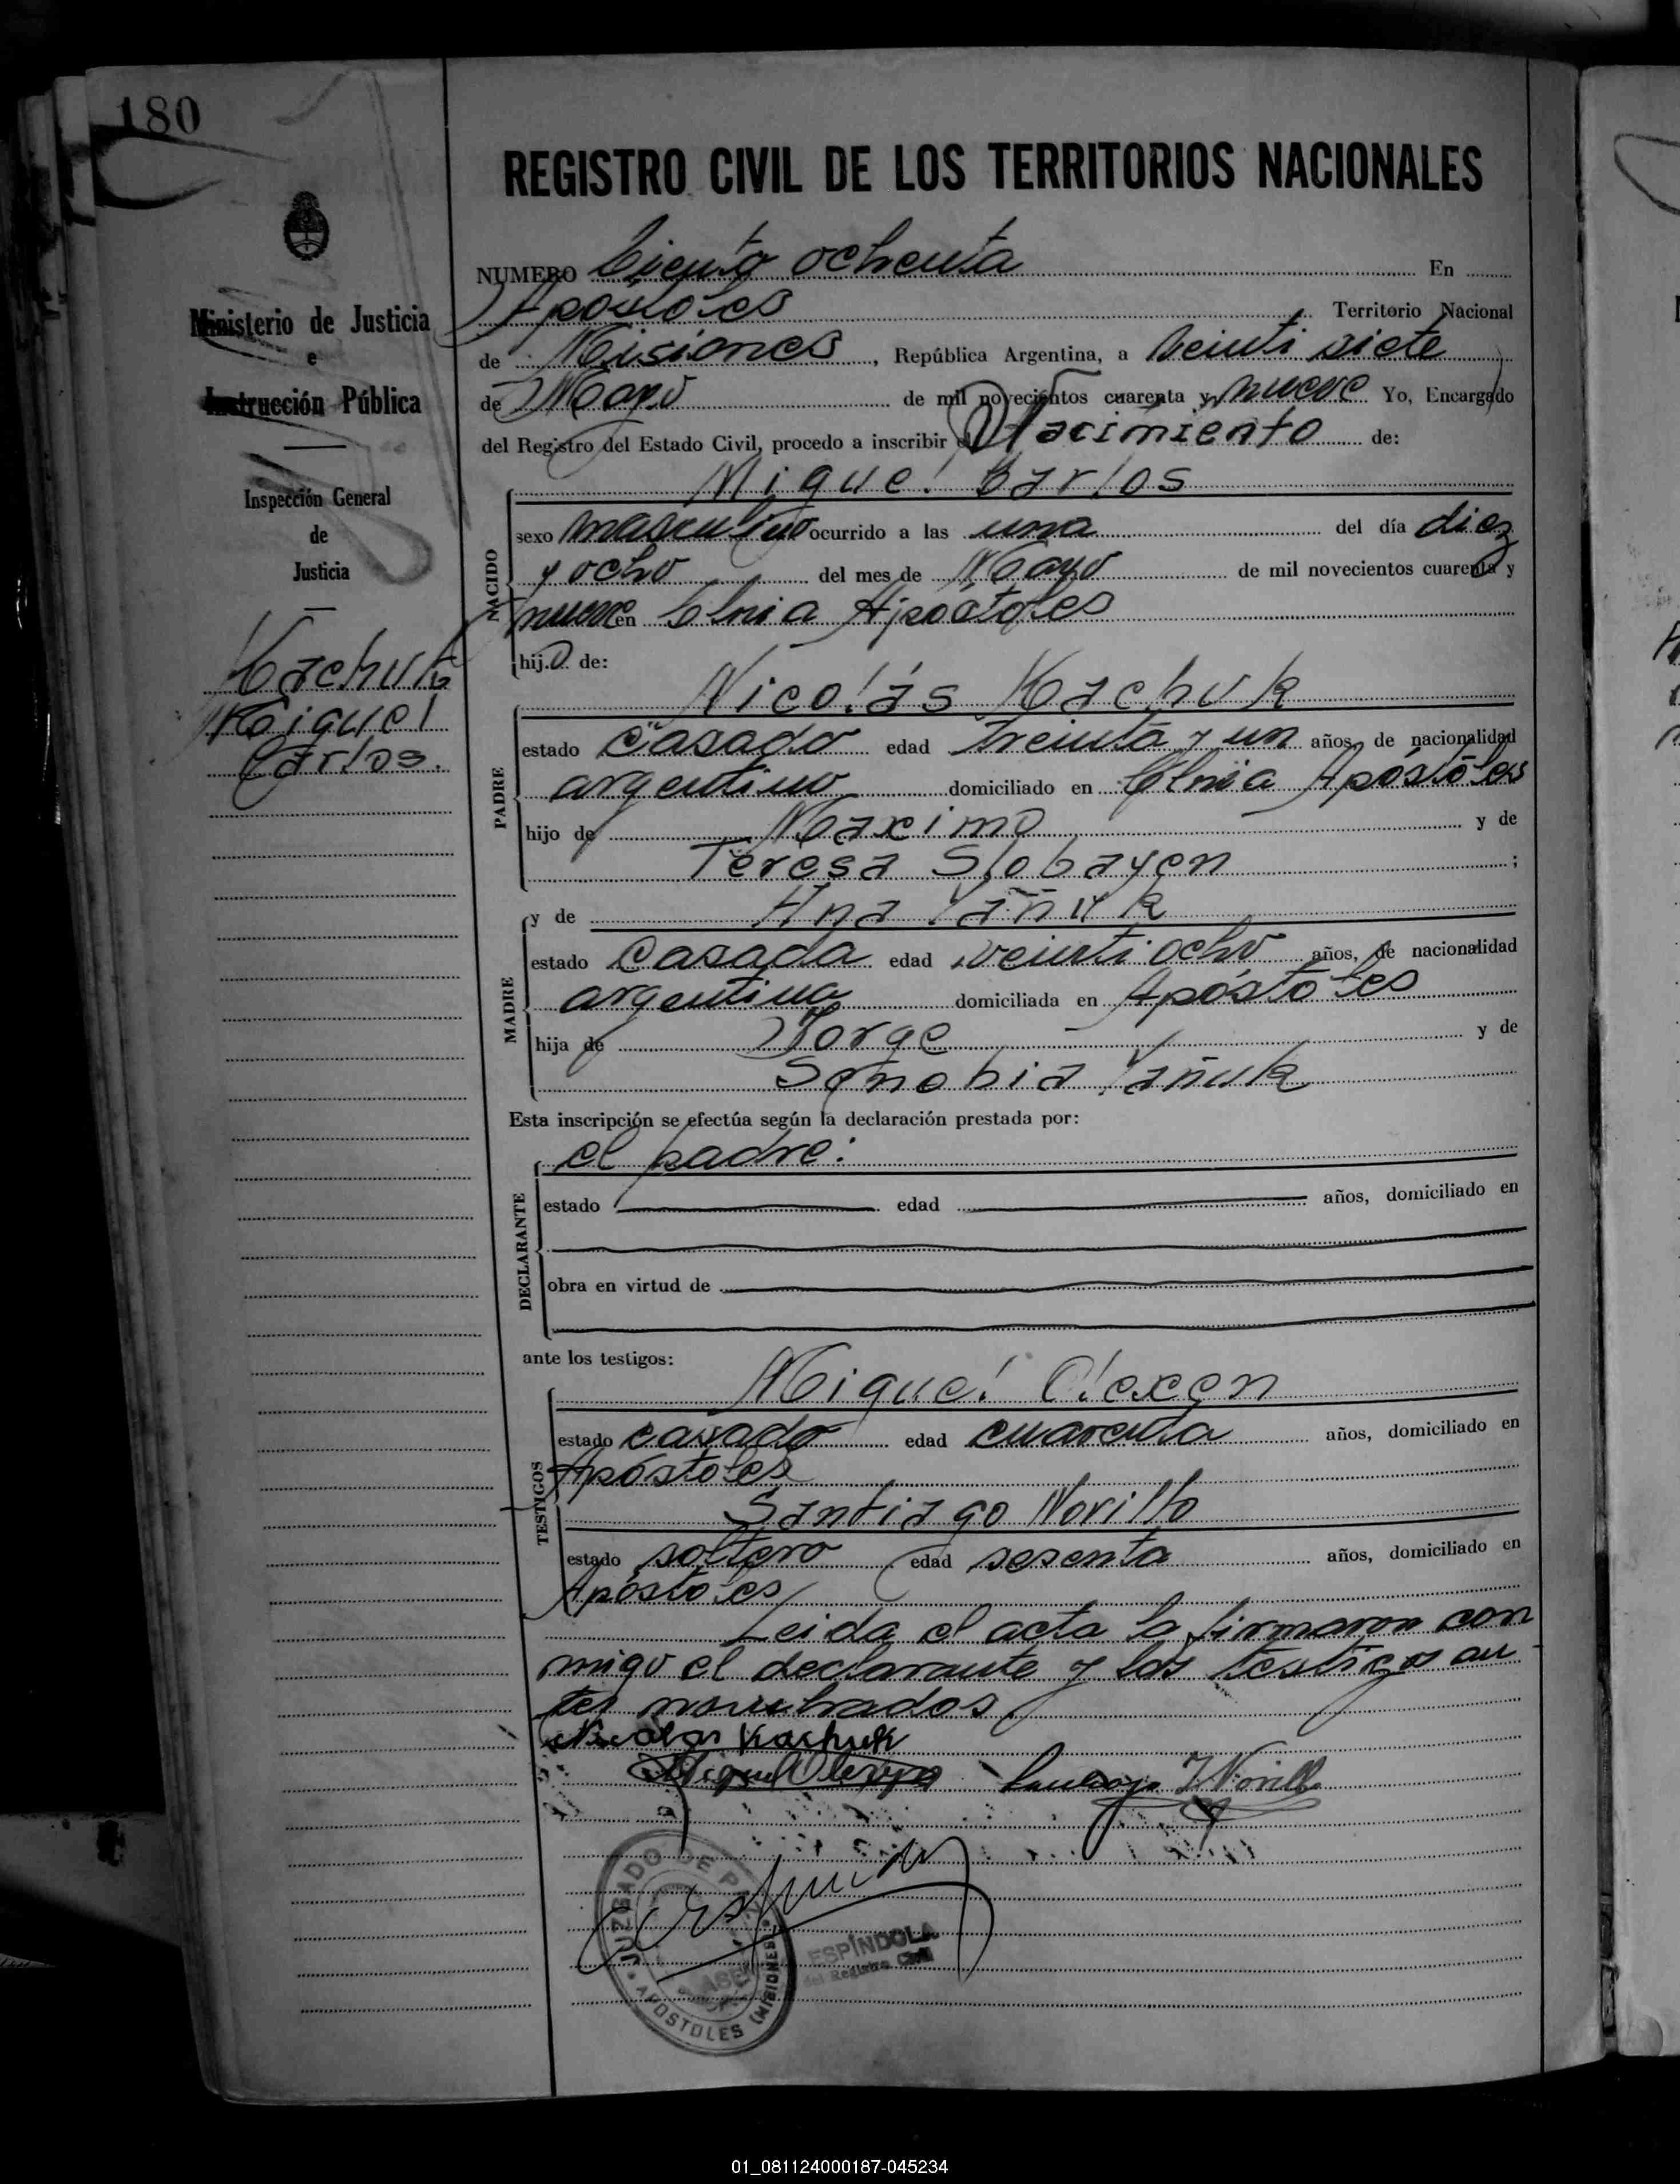 180
REGISTRO CIVIL DE LOS TERRITORIOS NACIONALES
Ministerio de Justicia
e
Instrucción Pública
Inspección General
de
Justicia
Kachuk
Miguel
Carlos.
NUMERO Ciento ochenta En
Apóstoles Territorio Nacional
de Misiones, República Argentina, a Veinti siete
de Mayo de mil novecientos cuarenta y nueve Yo, Encargado
del Registro del Estado Civil, procedo a inscribir el Nacimiento de:
Miguel Carlos
NACIDO
sexo masculino ocurrido a las una del día diez
y ocho del mes de Mayo de mil novecientos cuarenta y
nueve en Clnia Apóstoles
hijo de:
Nicolás Kachuk
PADRE
estado casado edad treinta y un años, de nacionalidad
argentino domiciliado en Clnia Apóstoles
hijo de Maximo y de
Teresa Slobayen ;
MADRE
y de Ana Yañuk
estado casada edad veinti ocho años, de nacionalidad
argentina domiciliada en Apóstoles
hija de Jorge y de
Senobia Yañuk
Esta inscripción se efectúa según la declaración prestada por:
el padre:
DECLARANTE
estado edad años, domiciliado en
obra en virtud de
ante los testigos:
Miguel Olexen
TESTIGOS
estado casado edad cuarenta años, domiciliado en
Apóstoles
Santiago Norillo
estado soltero edad sesenta años, domiciliado en
Apóstoles
Leida el acta la firmaron con
migo el declarante y los testigos an
tes nombrados.
Nicolas Kachuk
Miguel Olexen Santiago Norillo
JUZGADO DE PAZ
APOSTOLES (MISIONES)
ESPÍNDOLA
del Registro Civil
01_081124000187-045234